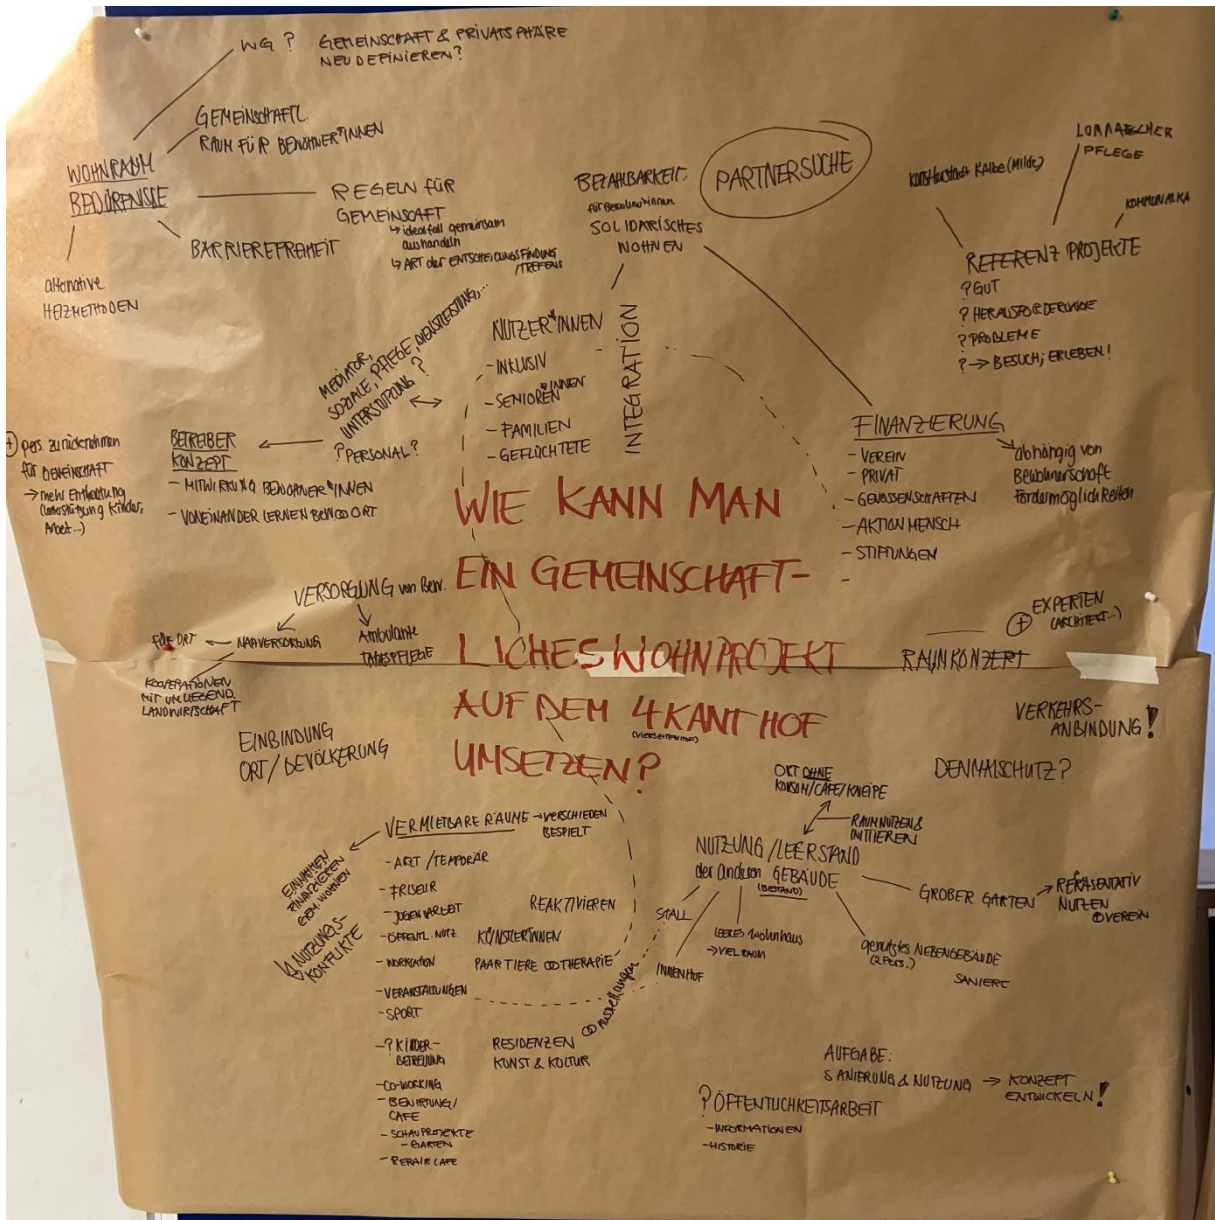 WG? GEMEINSCHAFT & PRIVATSPHÄRE
NEU DEFINIEREN?
GEMEINSCHAFTL
RAUM FÜR BEWOHNER*INNEN
WOHNRAUM
BEDÜRFNISSE
REGELN FÜR
GEMEINSCAFT
↳ idealfall gemeinsam
aushandeln
↳ ART der ENTSCHEIDUNGSFINDUNG
/TREFENS
BARRIEREFREIHEIT
alternative
HEIZMETHODEN
BEZAHLBARKEIT:
für Bewohner*innen
SOLIDARISCHES
WOHNEN
PARTNERSUCHE
Künstlerstadt Kalbe (Milde)
LOMMATSCHER
PFLEGE
KOMMUNALKA
REFERENZ PROJEKTE
? GUT
? HERAUSFORDERUNGE
? PROBLEME
? → BESUCH; ERLEBEN!
MEDIATOR,
SOZIALE, PFLEGE, DIENSTLEISTUNG,...
UNTERSTÜTZUNG?
? PERSONAL?
NUTZER*INNEN
- INKLUSIV
- SENIOREN*INNEN
- FAMILIEN
- GEFLÜCHTETE
INTEGRATION
FINANZIERUNG
- VEREIN
- PRIVAT
- GENOSSENSCHAFTEN
- AKTION MENSCH
- STIFTUNGEN
-
abhängig von
Bewohnerschaft
Fördermöglichkeiten
+ pers. zurücknehmen
für GEMEINSCHAFT
→ mehr Entlastung
(Unterstützung Kinder,
Arbeit...)
BETREIBER
KONZEPT
- MITWIRKUNG BEWOHNER*INNEN
- VONEINANDER LERNEN ORT
WIE KANN MAN
EIN GEMEINSCHAFT-
LICHES WOHNPROJEKT
AUF DEM 4KANTHOF
(VIERSEITENHOF)
UMSETZEN?
VERSORGUNG von Bew.
FÜR ORT ← NAHVERSORGUNG
Ambulante
TAGESPFLEGE
KOOPERATIONEN
MIT UMLIEGEND.
LANDWIRTSCHAFT
EINBINDUNG
ORT/BEVÖLKERUNG
+ EXPERTEN
(ARCHITEKT...)
RAUMKONZEPT
VERKEHRS-
ANBINDUNG!
DENKMALSCHUTZ?
VERMIETBARE RÄUME → VERSCHIEDEN
BESPIELT
EINNAHMEN
FINANZIEREN
GEM. WOHNEN
↳ NUTZUNGS-
KONFLIKTE
- ARZT/TEMPORÄR
- FRISEUR
- JUGENDARBEIT
- ÖFFENTL. NUTZ.
- WORKSTATION
- VERANSTALTUNGEN
- SPORT
- ? KINDER-
BETREUUNG
- CO-WORKING
- BEWIRTUNG/
CAFE
- SCHAUPROJEKTE
- GARTEN
- REPAIR CAFE
REAKTIVIEREN
KÜNSTLER*INNEN
PAAR TIERE THERAPIE
RESIDENZEN
KUNST & KULTUR
Ausstellungen
ORT OHNE
KONSUM/CAFE/KNEIPE
RAUM NUTZEN &
INITIIEREN
NUTZUNG/LEERSTAND
der anderen GEBÄUDE
(BESTAND)
STALL
INNENHOF
LEERES Wohnhaus
→ VIEL RAUM
GROßER GARTEN → REPRÄSENTATIV
NUTZEN
VEREIN
genutztes NEBENGEBÄUDE
(2 PERS.)
SANIERT
AUFGABE:
SANIERUNG & NUTZUNG → KONZEPT
ENTWICKELN!
? ÖFFENTLICHKEITSARBEIT
- INFORMATIONEN
- HISTORIE